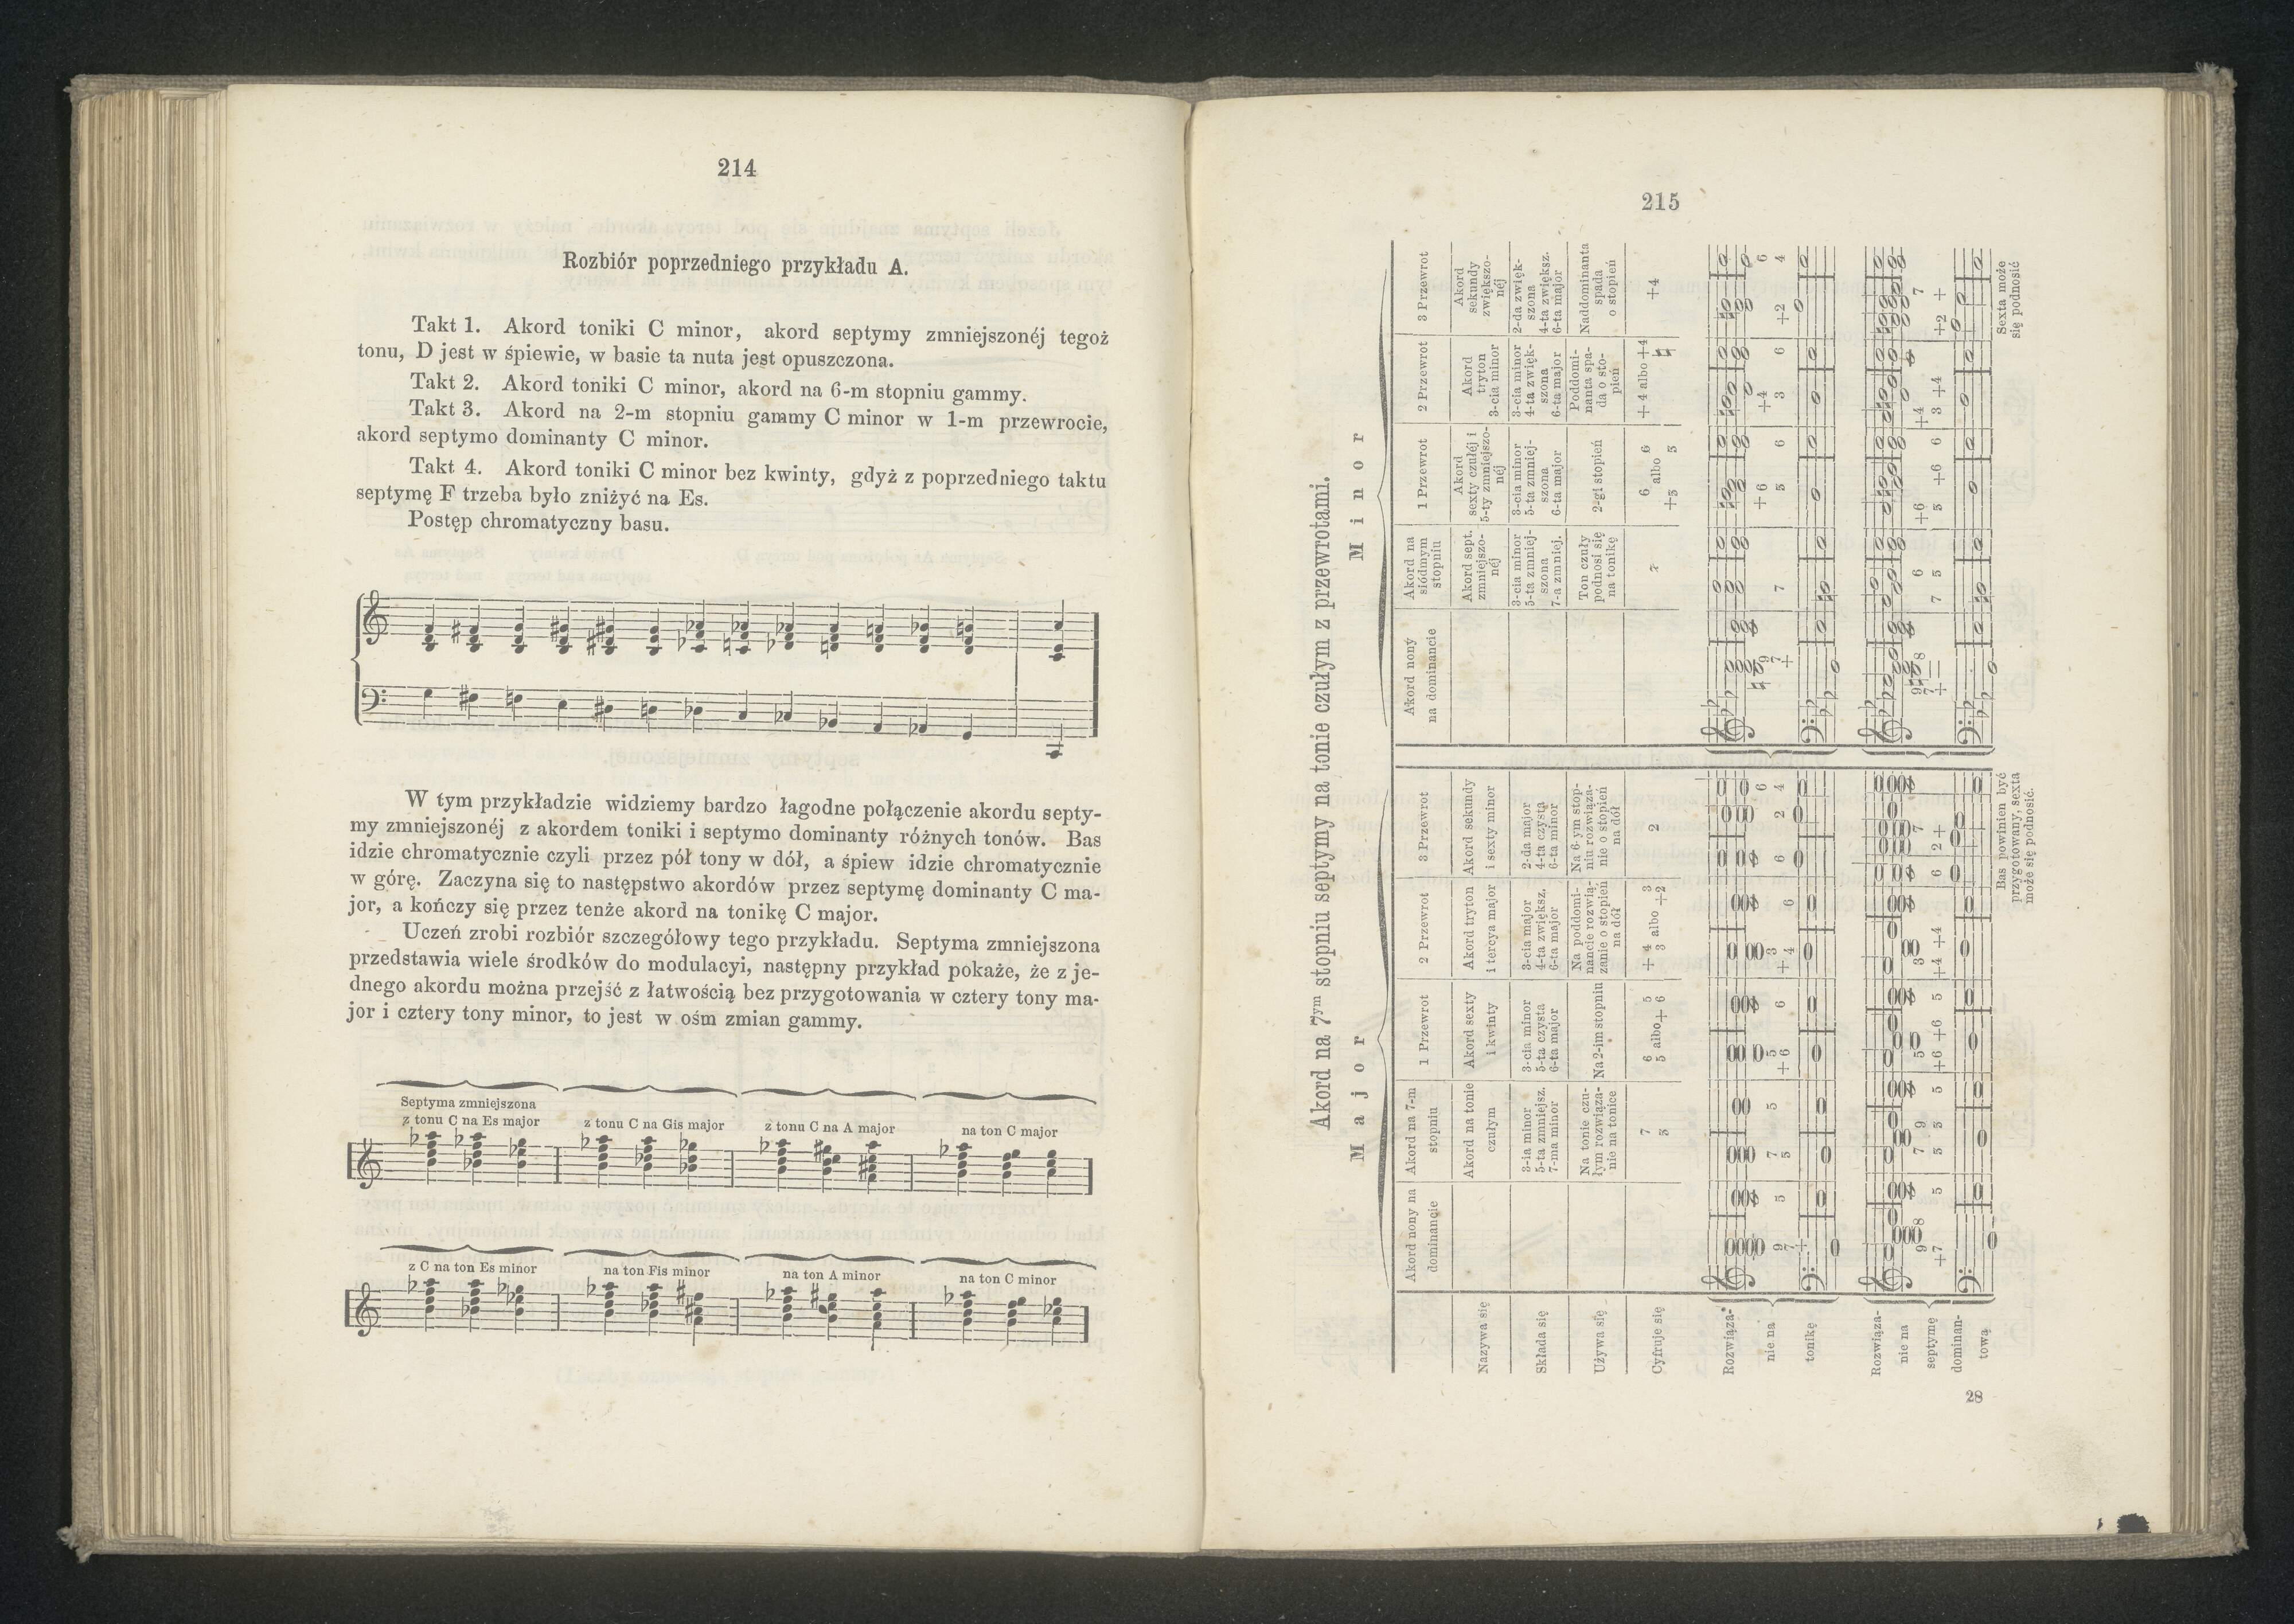 214
Rozbiór poprzedniego przykładu A.
Takt 1. Akord toniki C minor, akord septymy zmniejszonéj tegoż
tonu, D jest w śpiewie, w basie ta nuta jest opuszczona.
Takt 2. Akord toniki C minor, akord na 6-m stopniu gammy.
Takt 3. Akord na 2-m stopniu gammy C minor w 1-m przewrocie,
akord septymo dominanty C minor.
Takt 4. Akord toniki C minor bez kwinty, gdyż z poprzedniego taktu
septymę F trzeba było zniżyć na Es.
Postęp chromatyczny basu.
W tym przykładzie widziemy bardzo łagodne połączenie akordu septy-
my zmniejszonéj z akordem toniki i septymo dominanty różnych tonów. Bas
idzie chromatycznie czyli przez pół tony w dół, a śpiew idzie chromatycznie
w górę. Zaczyna się to następstwo akordów przez septymę dominanty C ma-
jor, a kończy się przez tenże akord na tonikę C major.
Uczeń zrobi rozbiór szczegółowy tego przykładu. Septyma zmniejszona
przedstawia wiele środków do modulacyi, następny przykład pokaże, że z je-
dnego akordu można przejść z łatwością bez przygotowania w cztery tony ma-
jor i cztery tony minor, to jest w ośm zmian gammy.
Septyma zmniejszona
z tonu C na Es major z tonu C na Gis major z tonu C na A major na ton C major
z C na ton Es minor na ton Fis minor na ton A minor na ton C minor
215
Akord na 7ym stopniu septymy na tonie czułym z przewrotami.
Major Minor
Akord nony na dominancie
Akord na 7-m stopniu
1 Przewrot
2 Przewrot
3 Przewrot
Akord nony na dominancie
Akord na siódmym stopniu
1 Przewrot
2 Przewrot
3 Przewrot
Nazywa się
Akord na tonie czułym
Akord sexty i kwinty
Akord tryton i tercya major
Akord sekundy i sexty minor
Akord sept. zmniejszo-néj
Akord sexty czułéj i 5-ty zmniejszo-néj
Akord tryton 3-cia minor
Akord sekundy zwiększo-néj
Składa się
3-ia minor 5-ta zmniejsz. 7-ma minor
3-cia minor 5-ta czysta 6-ta major
3-cia major 4-ta zwiększ. 6-ta major
2-da major 4-ta czysta 6-ta minor
3-cia minor 5-ta zmniej-szona 7-a zmniej.
3-cia minor 5-ta zmniej-szona 6-ta major
3-cia minor 4-ta zwięk-szona 6-ta major
2-da zwięk-szona 4-ta zwiększ. 6-ta major
Używa się
Na tonie czu-łym rozwiąza-nie na tonice
Na 2-im stopniu
Na poddomi-nancie rozwią-zanie o stopień na dół
Na 6-ym stop-niu rozwiąza-nie o stopień na dół
Ton czuły podnosi się na tonikę
2-gi stopień
Poddomi-nanta spa-da o sto-pień
Naddominanta spada o stopień
Cyfruje się
7 5
6 5 albo + 5 6
+ 4 3 albo 3 +2
2
7
6 +5 albo 6 5
+ 4 albo +4
+4
Rozwiąza-
nie na
tonikę
Rozwiąza-
nie na
septymę
dominan-
tową
Bas powinien być
przygotowany, sexta
może się podnosić.
Sexta może
się podnosić
28